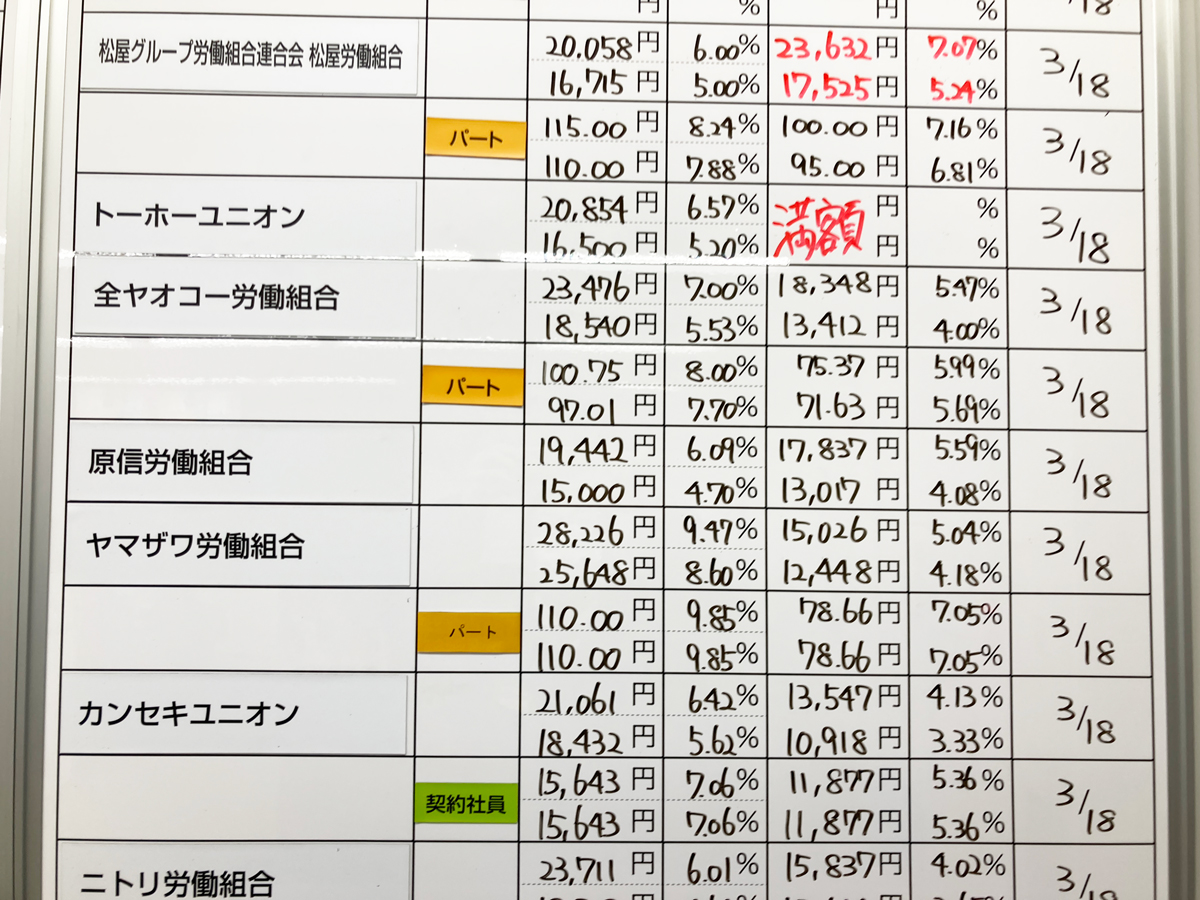 円 % 円 % /18
松屋グループ労働組合連合会 松屋労働組合 20,058円 6.00% 23,632円 7.07% 3/18
16,715円 5.00% 17,525円 5.24%
パート 115.00円 8.24% 100.00円 7.16% 3/18
110.00円 7.88% 95.00円 6.81%
トーホーユニオン 20,854円 6.57% 満額 円 % 3/18
16,500円 5.20% 円 %
全ヤオコー労働組合 23,476円 7.00% 18,348円 5.47% 3/18
18,540円 5.53% 13,412円 4.00%
パート 100.75円 8.00% 75.37円 5.99% 3/18
97.01円 7.70% 71.63円 5.69%
原信労働組合 19,442円 6.09% 17,837円 5.59% 3/18
15,000円 4.70% 13,017円 4.08%
ヤマザワ労働組合 28,226円 9.47% 15,026円 5.04% 3/18
25,648円 8.60% 12,448円 4.18%
パート 110.00円 9.85% 78.66円 7.05% 3/18
110.00円 9.85% 78.66円 7.05%
カンセキユニオン 21,061円 6.42% 13,547円 4.13% 3/18
18,432円 5.62% 10,918円 3.33%
契約社員 15,643円 7.06% 11,877円 5.36% 3/18
15,643円 7.06% 11,877円 5.36%
ニトリ労働組合 23,711円 6.01% 15,837円 4.02% 3/18